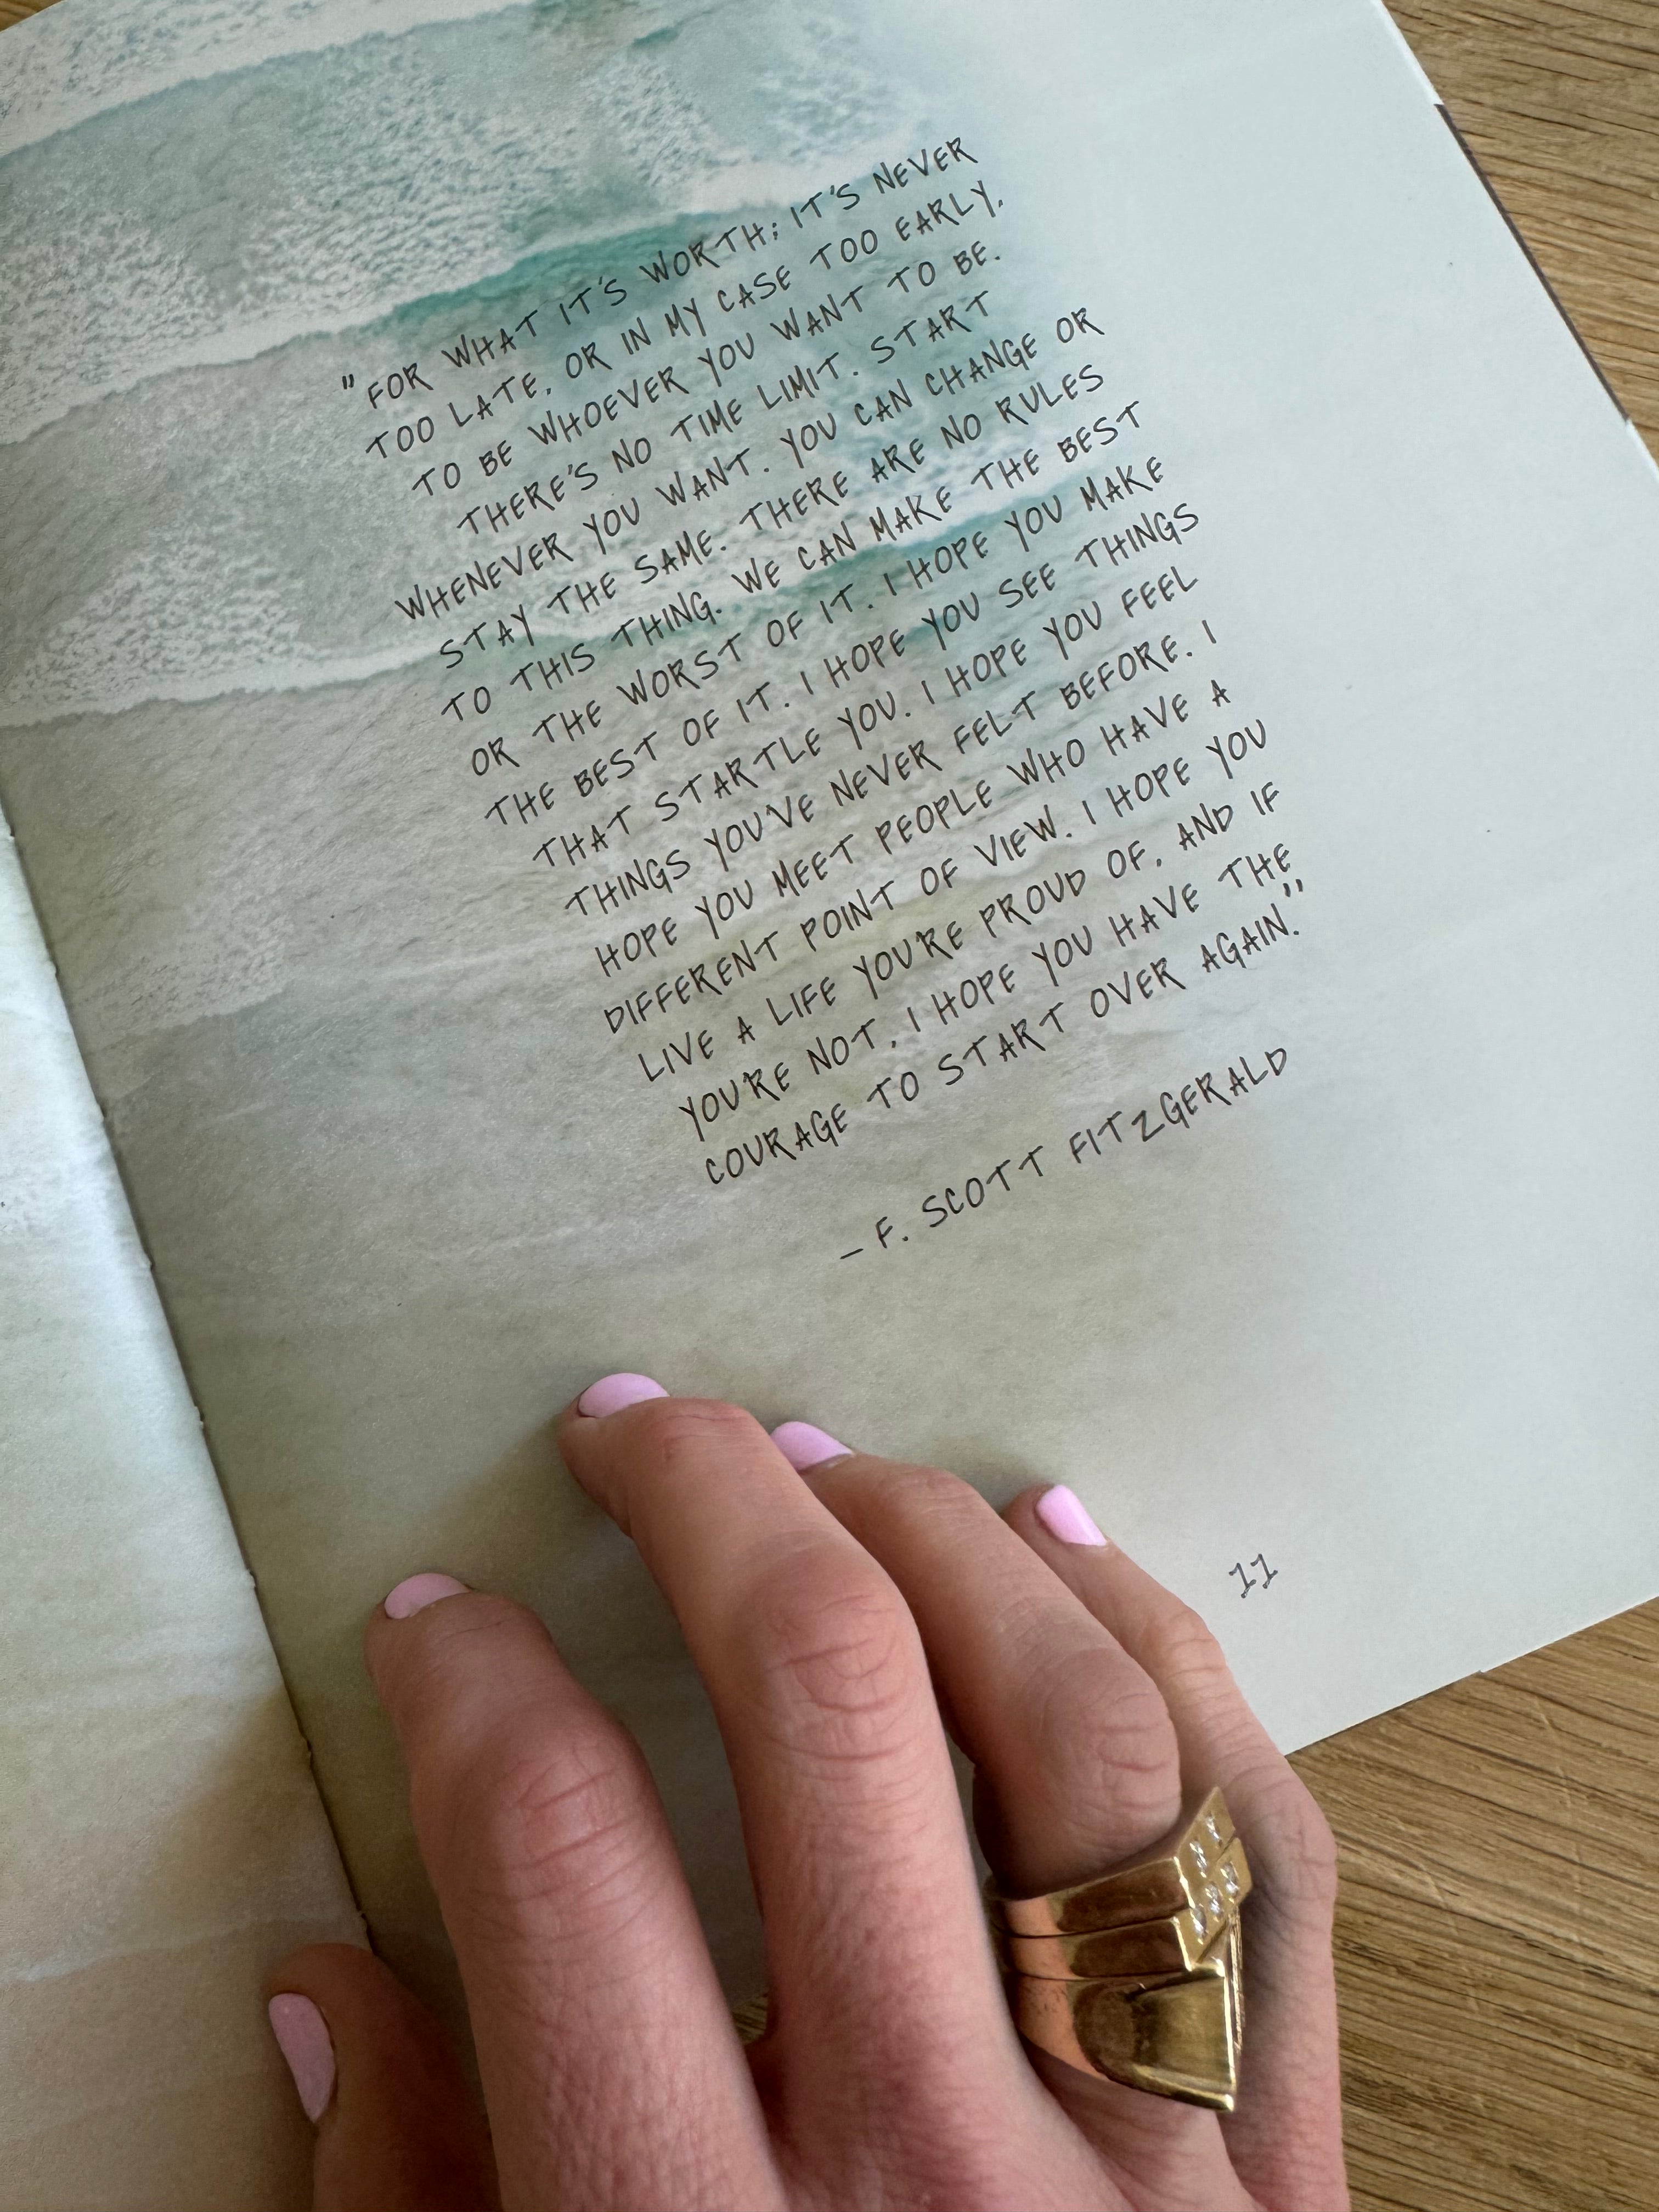 "FOR WHAT IT'S WORTH: IT'S NEVER
TOO LATE, OR IN MY CASE TOO EARLY,
TO BE WHOEVER YOU WANT TO BE.
THERE'S NO TIME LIMIT. START
WHENEVER YOU WANT. YOU CAN CHANGE OR
STAY THE SAME. THERE ARE NO RULES
TO THIS THING. WE CAN MAKE THE BEST
OR THE WORST OF IT. I HOPE YOU MAKE
THE BEST OF IT. I HOPE YOU SEE THINGS
THAT STARTLE YOU. I HOPE YOU FEEL
THINGS YOU'VE NEVER FELT BEFORE. I
HOPE YOU MEET PEOPLE WHO HAVE A
DIFFERENT POINT OF VIEW. I HOPE YOU
LIVE A LIFE YOU'RE PROUD OF, AND IF
YOU'RE NOT, I HOPE YOU HAVE THE
COURAGE TO START OVER AGAIN."
– F. SCOTT FITZGERALD
11